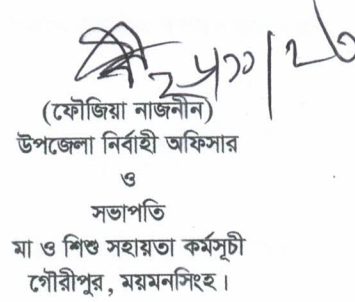 (ফৌজিয়া নাজনীন)
উপজেলা নির্বাহী অফিসার
ও
সভাপতি
মা ও শিশু সহায়তা কর্মসূচী
গৌরীপুর, ময়মনসিংহ।